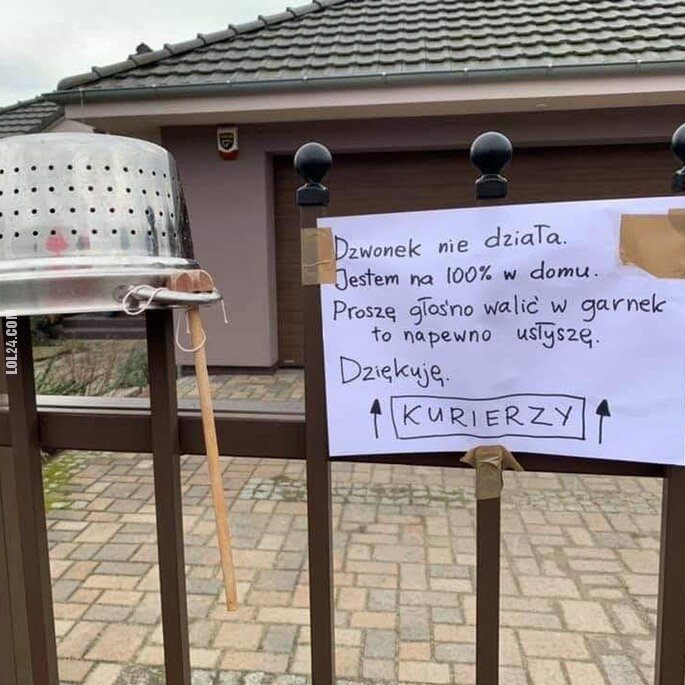 Dzwonek nie działa.
Jestem na 100% w domu.
Proszę głośno walić w garnek
to napewno usłyszę.
Dziękuję.
KURIERZY
LOL24.COM